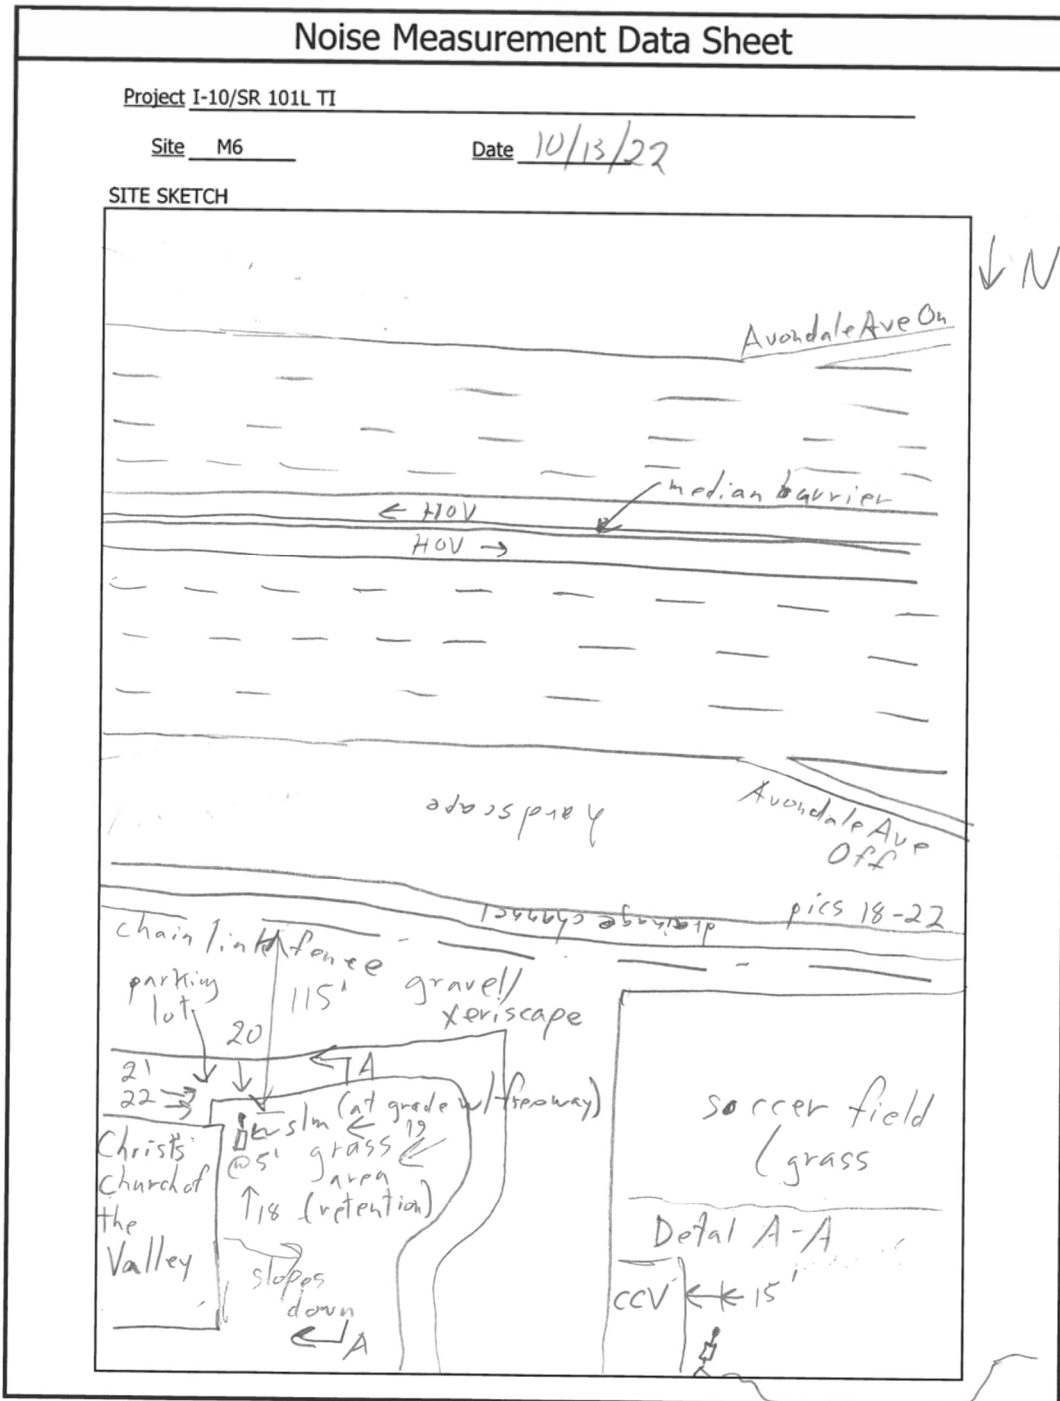 Noise Measurement Data Sheet
Project I-10/SR 101L TI
Site M6
Date 10/13/22
SITE SKETCH
↓ N
Avondale Ave On
median barrier
← HOV
HOV →
hardscape
Avondale Ave
Off
drainage channel
pics 18-22
chain link fence
parking
lot
115'
gravel/
xeriscape
20
21
22
A
slm (at grade w/ freeway)
19
@5'
grass
area
18 (retention)
Christs
Church of
the
Valley
slopes
down
A
soccer field
grass
Detal A-A
CCV
15'